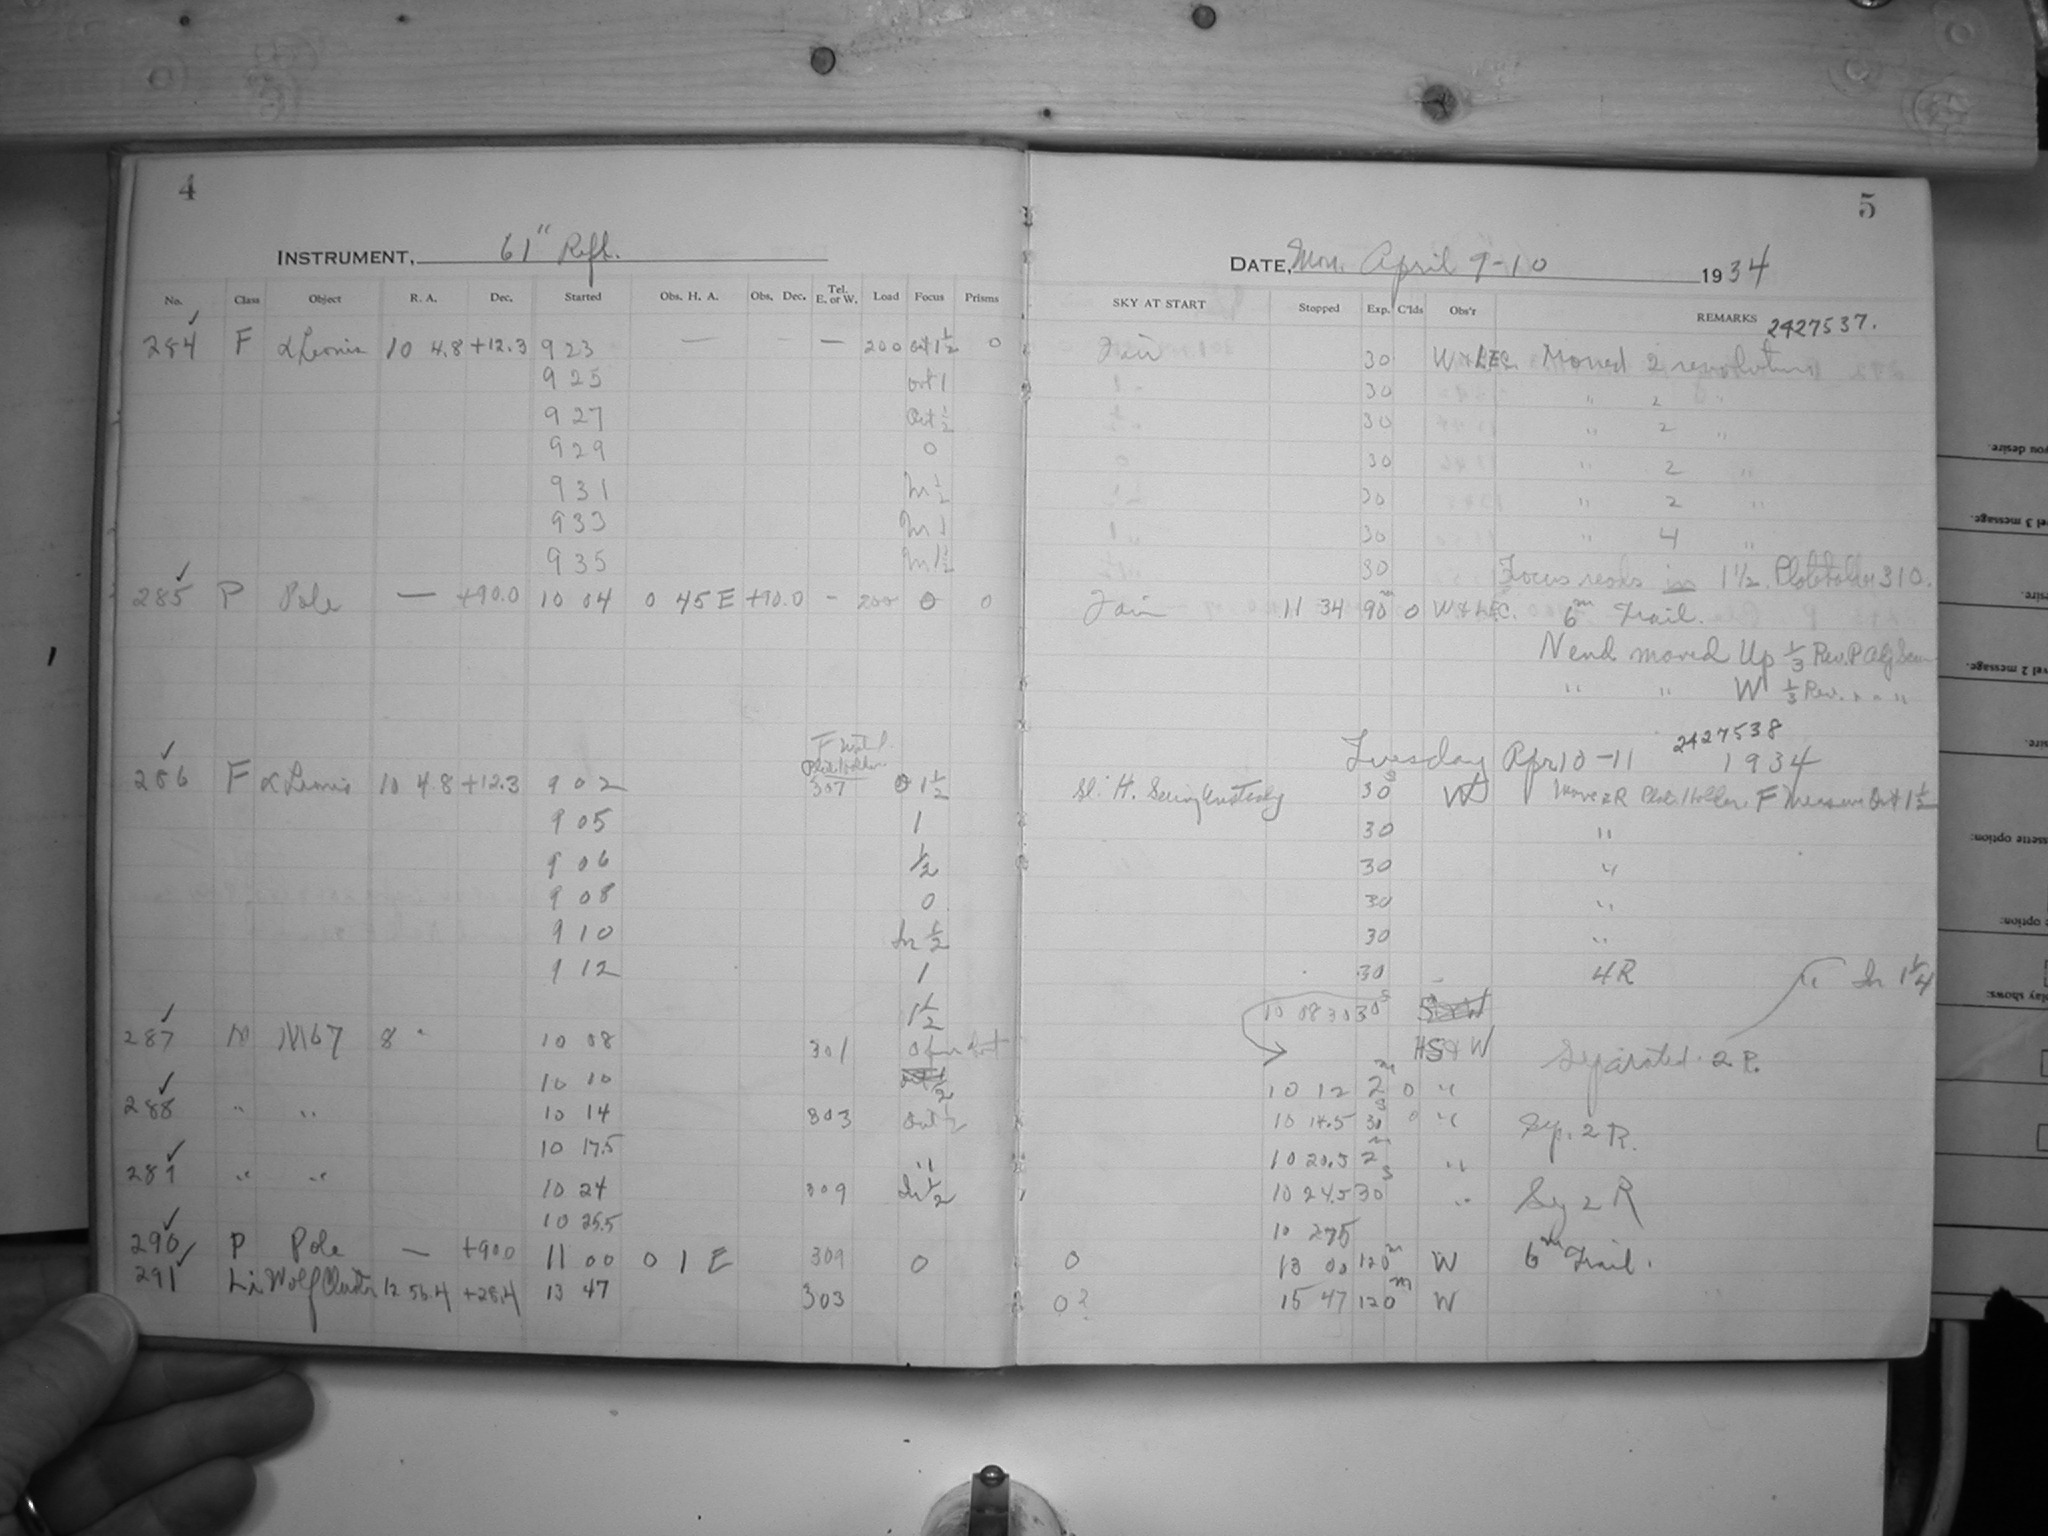 4
INSTRUMENT, 61" Refl.
No. Class Object R. A. Dec. Started Obs. H. A. Obs. Dec. Tel. E. or W. Load Focus Prisms
284 F α Leonis 10 4.8 +12.3 9 23 — — — 200 out 1½ 0
9 25 out 1
9 27 Out ½
9 29 0
9 31 In ½
9 33 In 1
9 35 In 1½
285 P Pole — +90.0 10 04 0 45 E +90.0 - 200 0 0
286 F α Leonis 10 4.8 +12.3 9 02 307 1½
9 05 1
9 06 ½
9 08 0
9 10 In ½
9 12 1
1½
287 M67 8 10 08 301
10 10
288 " " 10 14 303 out ½
10 17.5 "
289 " " 10 24 309 In ½
10 25.5
290 P Pole — +90.0 11 00 0 1 E 309 0
291 Li Wolf Cluster 12 56.4 +28.4 13 47 303
5
DATE, Mon. April 9-10 1934
SKY AT START Stopped Exp. C'lds Obs'r REMARKS 2427537.
Fair 30 W & LEC. Moved 2 revolutions
30 " 2 "
30 " 2 "
30 " 2 "
30 " 2 "
30 " 4 "
30 Focus reads in 1½. Plateholder 310.
Fair 11 34 90m 0 W & LEC. 6m Trail.
N end moved Up ⅓ Rev. P Adj Screw
" " W ⅓ Rev. " " "
2427538
Tuesday Apr 10-11 1934
Sl. H. Seeing Unsteady 30s W Move 2R Plate Holder F Measure Out 1½
30 "
30 "
30 "
30 "
30 4R " In 1¼
10 08 30 30s
HS & W Separated 2 R.
10 12 2m 0 "
10 14.5 30s 0 " Sep. 2 R.
10 20.5 2m "
10 24.5 30s " Sep 2 R
10 27.5
0 13 00 120m W 6m Trail.
0? 15 47 120m W